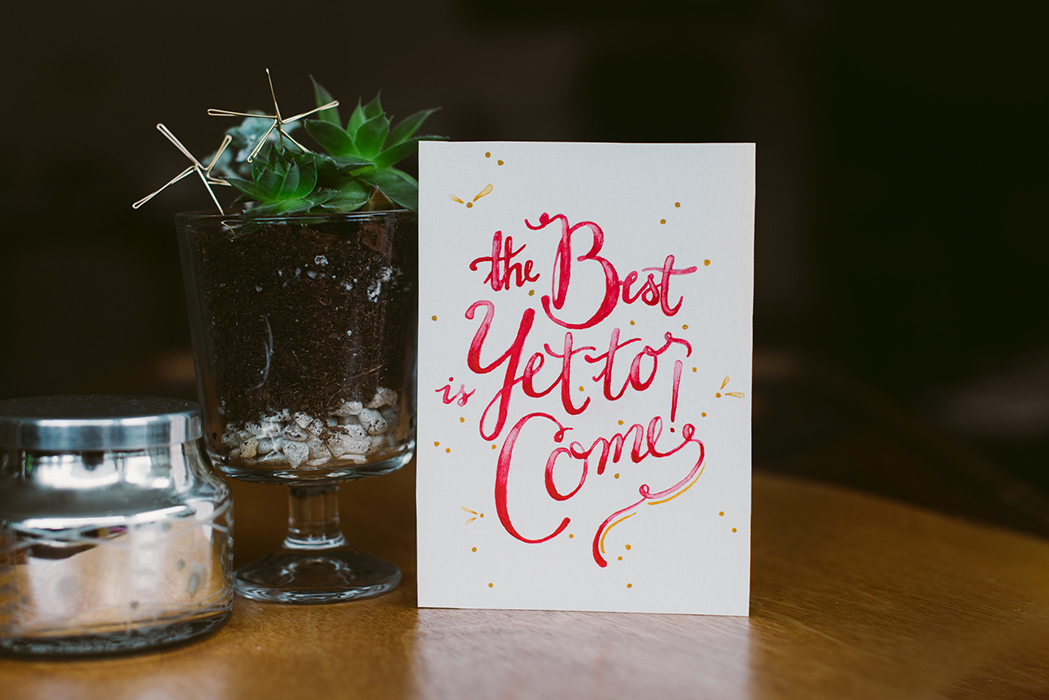 the Best
is Yet to
Come!